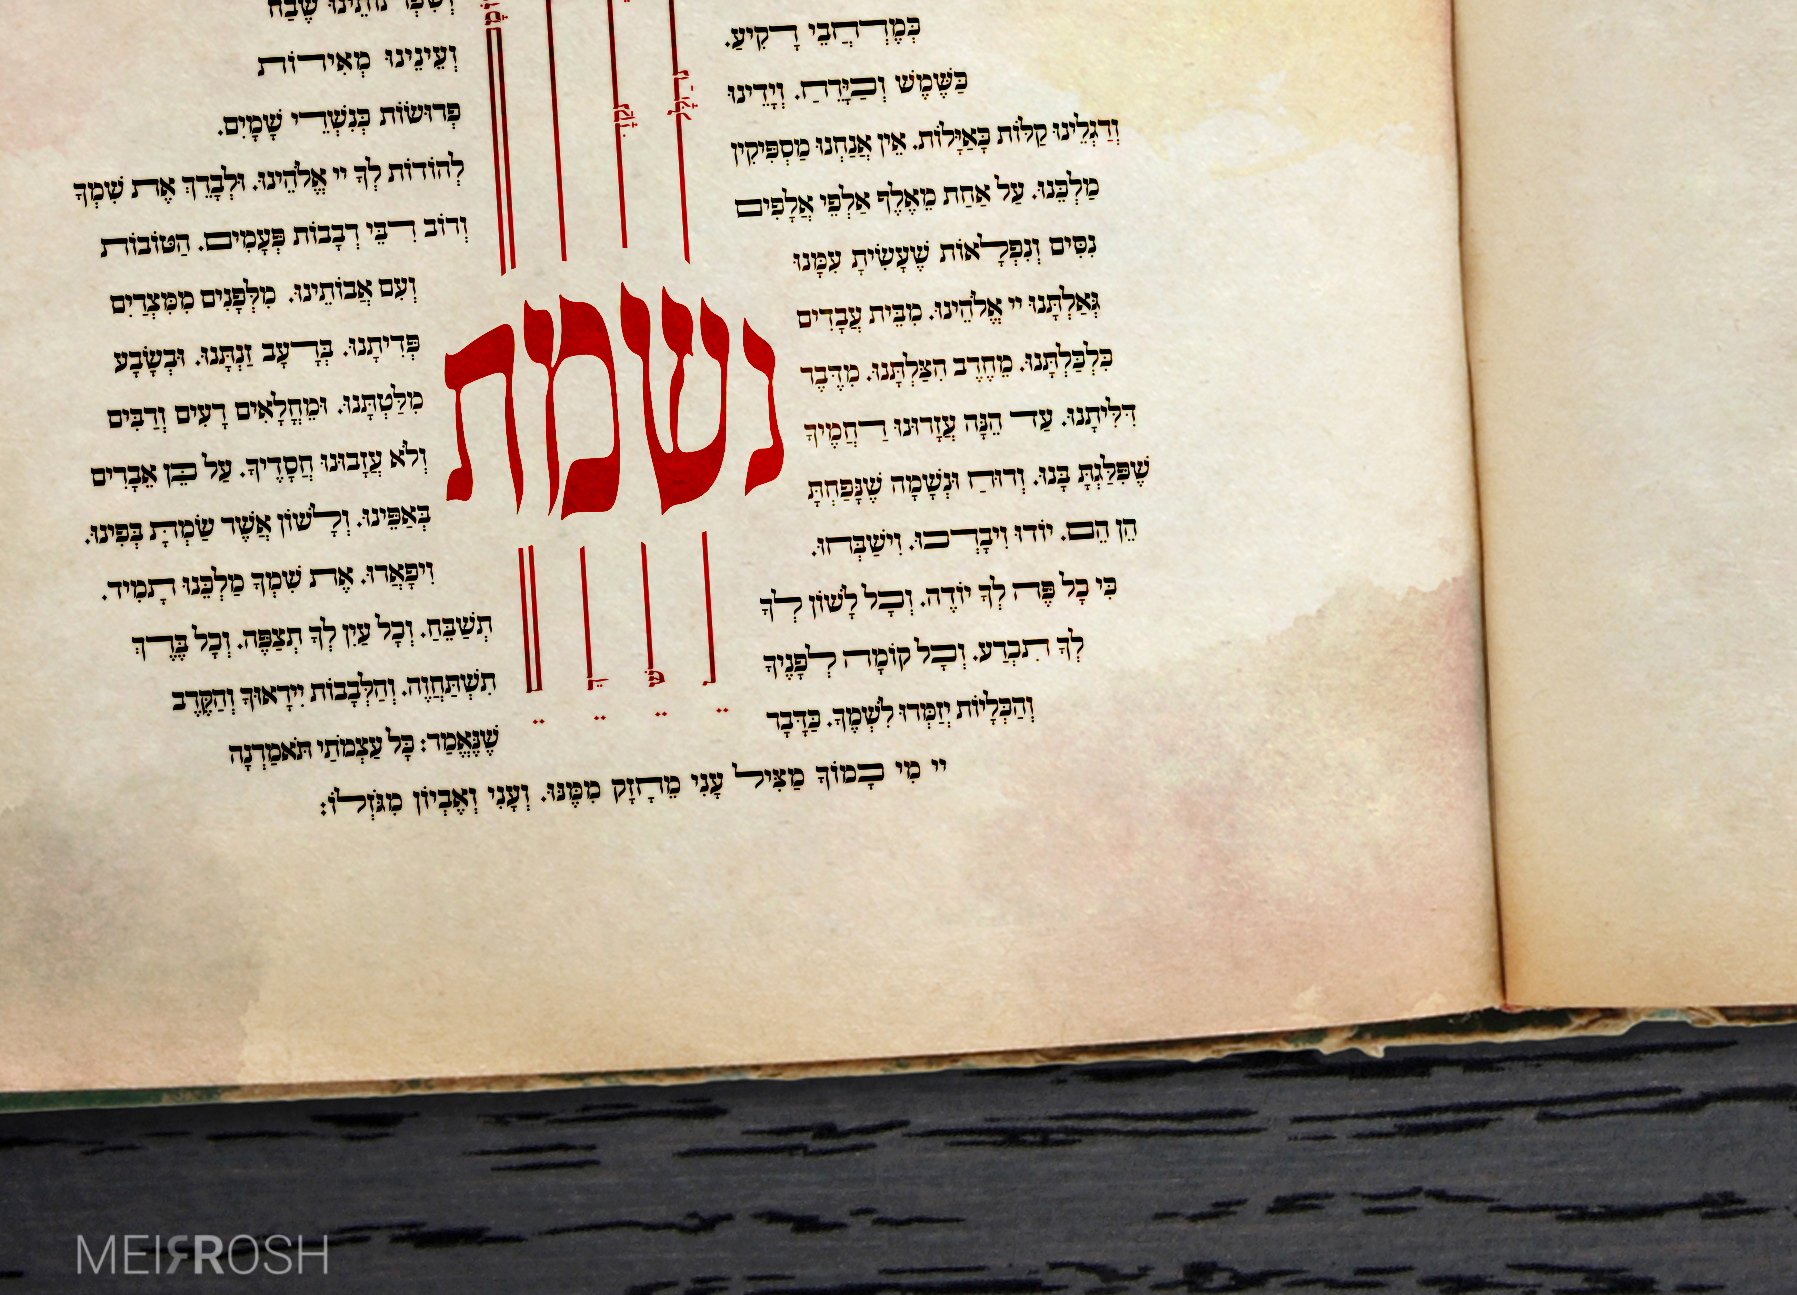 נשמת
וְשִׂפְתוֹתֵינוּ שֶׁבַח
כְּמֶרְחֲבֵי רָקִיעַ. וְעֵינֵינוּ מְאִירוֹת
כַּשֶּׁמֶשׁ וְכַיָּרֵחַ. וְיָדֵינוּ פְּרוּשׂוֹת כְּנִשְׁרֵי שָׁמָיִם.
וְרַגְלֵינוּ קַלּוֹת כָּאַיָּלוֹת. אֵין אֲנַחְנוּ מַסְפִּיקִין לְהוֹדוֹת לְךָ יי אֱלֹהֵינוּ. וּלְבָרֵךְ אֶת שִׁמְךָ
מַלְכֵּנוּ. עַל אַחַת מֵאֶלֶף אַלְפֵי אֲלָפִים וְרוֹב רִבֵּי רְבָבוֹת פְּעָמִים. הַטּוֹבוֹת
נִסִּים וְנִפְלָאוֹת שֶׁעָשִׂיתָ עִמָּנוּ וְעִם אֲבוֹתֵינוּ. מִלְּפָנִים מִמִּצְרַיִם
גְּאַלְתָּנוּ יי אֱלֹהֵינוּ. מִבֵּית עֲבָדִים פְּדִיתָנוּ. בְּרָעָב זַנְתָּנוּ. וּבְשָׂבָע
כִּלְכַּלְתָּנוּ. מֵחֶרֶב הִצַּלְתָּנוּ. מִדֶּבֶר מִלַּטְתָּנוּ. וּמֵחֳלָאִים רָעִים וְרַבִּים
דִּלִּיתָנוּ. עַד הֵנָּה עֲזָרוּנוּ רַחֲמֶיךָ וְלֹא עֲזָבוּנוּ חֲסָדֶיךָ. עַל כֵּן אֵבָרִים
שֶׁפִּלַּגְתָּ בָּנוּ. וְרוּחַ וּנְשָׁמָה שֶׁנָּפַחְתָּ בְּאַפֵּינוּ. וְלָשׁוֹן אֲשֶׁר שַׂמְתָּ בְּפִינוּ.
הֵן הֵם. יוֹדוּ וִיבָרְכוּ. וִישַׁבְּחוּ. וִיפָאֲרוּ. אֶת שִׁמְךָ מַלְכֵּנוּ תָמִיד.
כִּי כָל פֶּה לְךָ יוֹדֶה. וְכָל לָשׁוֹן לְךָ תְשַׁבֵּחַ. וְכָל עַיִן לְךָ תְצַפֶּה. וְכָל בֶּרֶךְ
לְךָ תִכְרַע. וְכָל קוֹמָה לְפָנֶיךָ תִשְׁתַּחֲוֶה. וְהַלְּבָבוֹת יִירָאוּךָ וְהַקֶּרֶב
וְהַכְּלָיוֹת יְזַמְּרוּ לִשְׁמֶךָ. כַּדָּבָר שֶׁנֶּאֱמַר: כָּל עַצְמֹתַי תֹּאמַרְנָה
יי מִי כָמוֹךָ מַצִּיל עָנִי מֵחָזָק מִמֶּנּוּ. וְעָנִי וְאֶבְיוֹן מִגֹּזְלוֹ:
MEIR ROSH